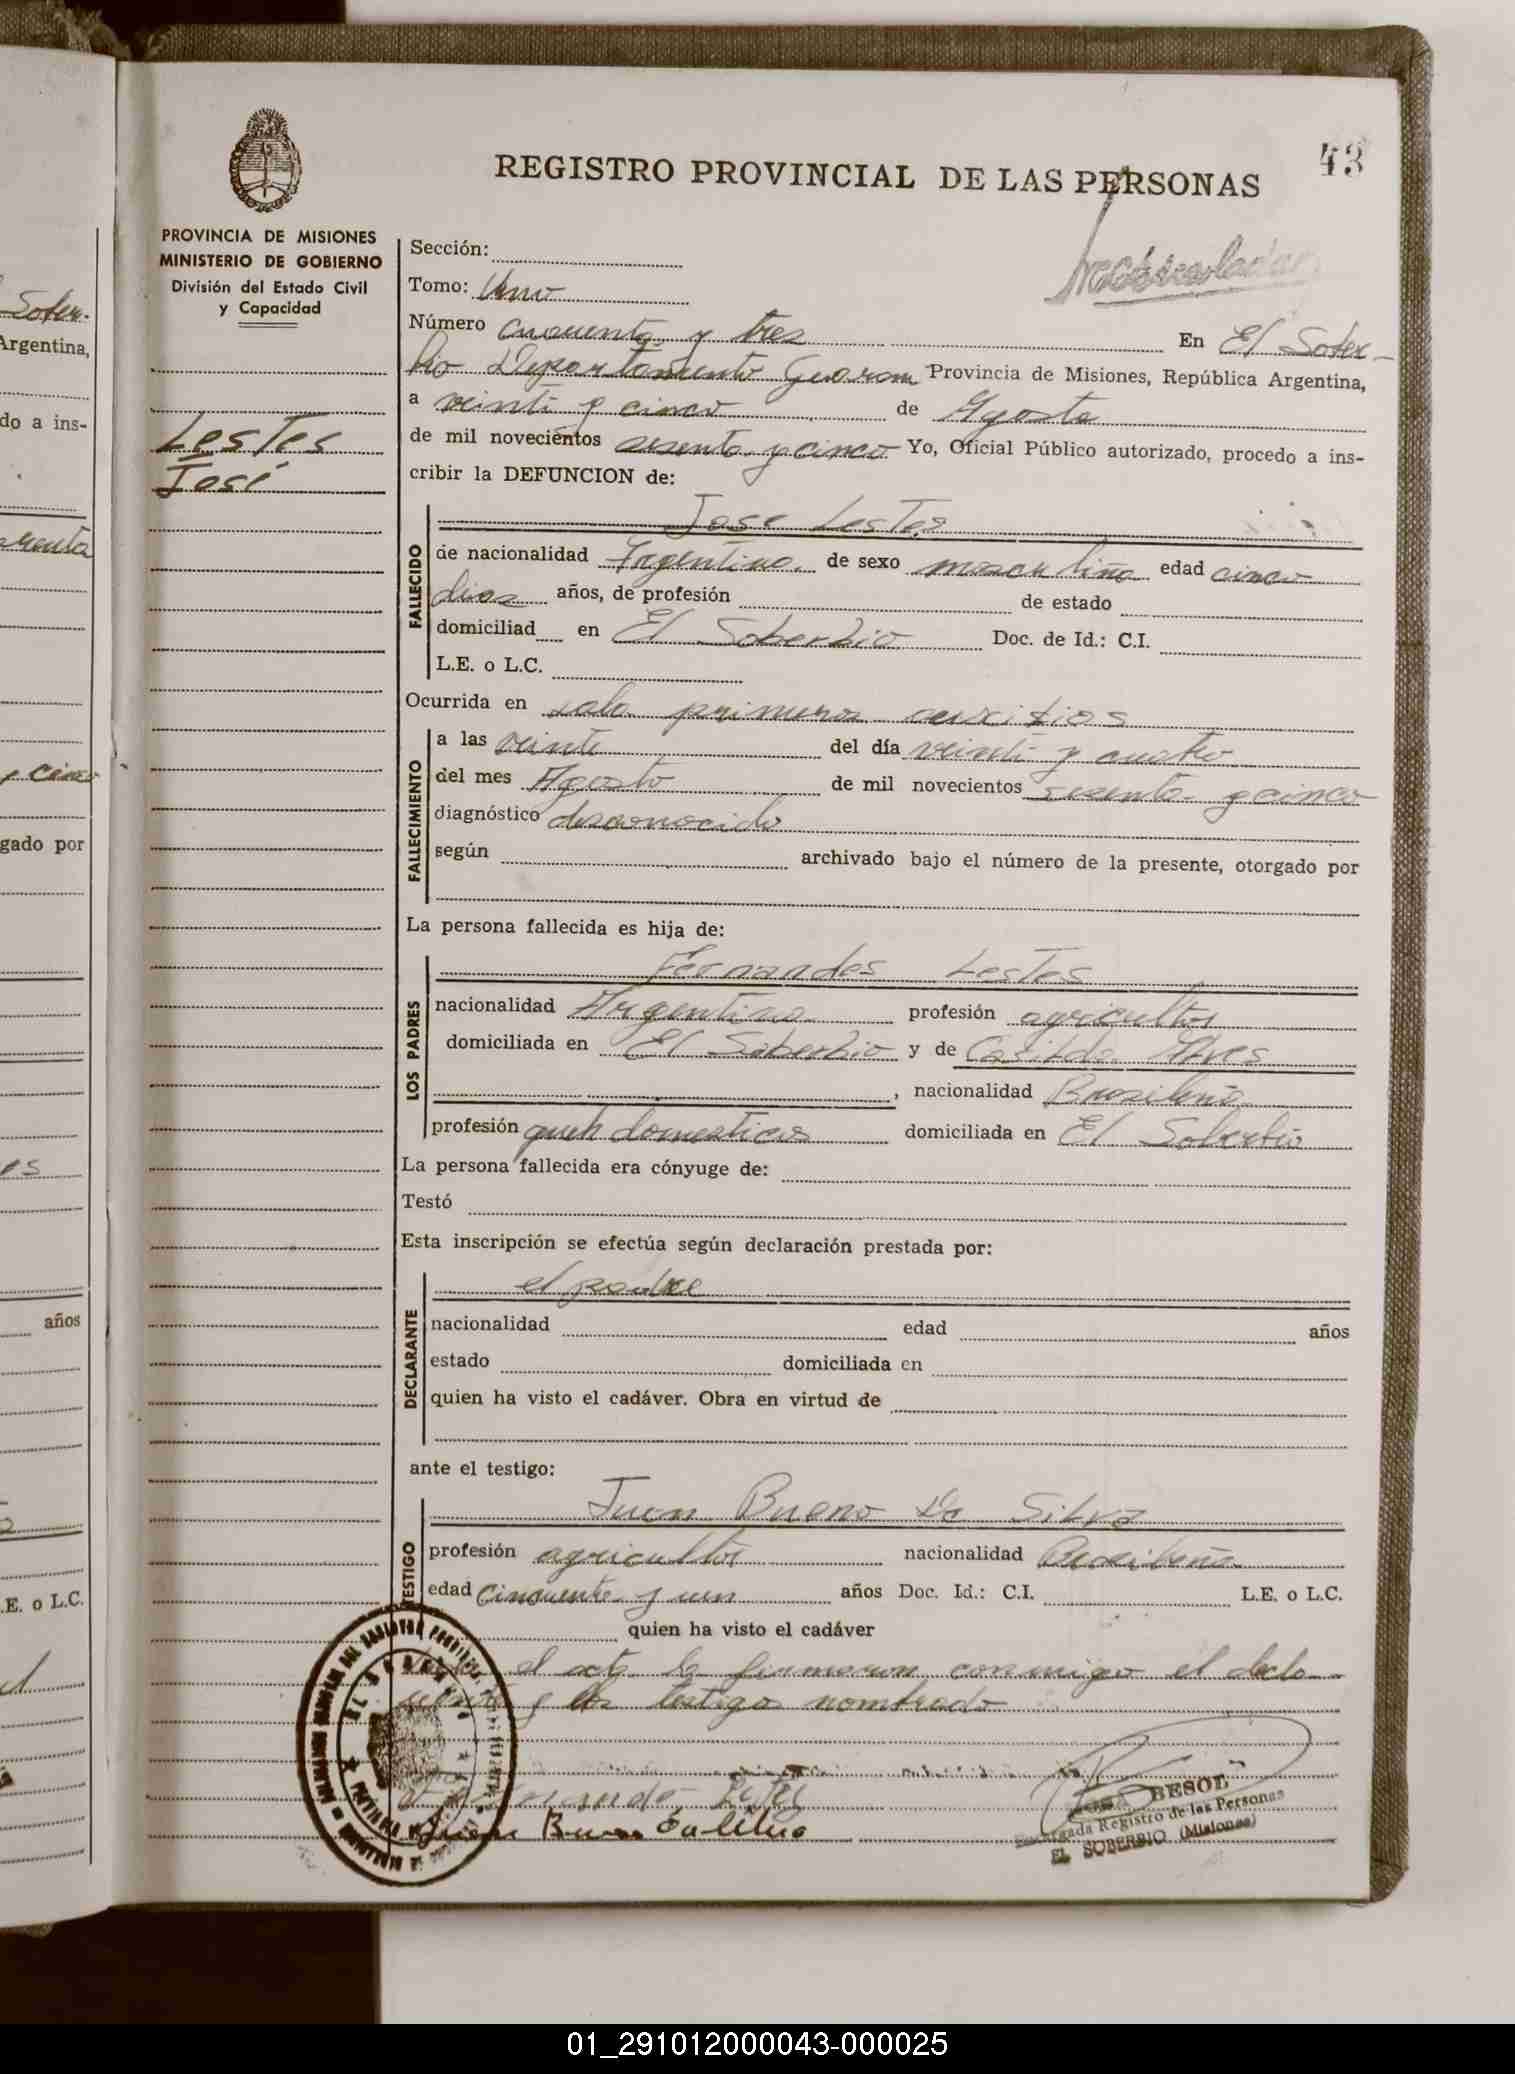 43
REGISTRO PROVINCIAL DE LAS PERSONAS
PROVINCIA DE MISIONES
MINISTERIO DE GOBIERNO
División del Estado Civil
y Capacidad
Lestes
José
Sección:
Tomo: Uno
Número cincuenta y tres En El Sober-
bio Departamento Guarani Provincia de Misiones, República Argentina,
a veinti y cinco de Agosto
de mil novecientos sesenta y cinco Yo, Oficial Público autorizado, procedo a ins-
cribir la DEFUNCION de:
Jose Lestes
FALLECIDO
de nacionalidad Argentina de sexo masculino edad cinco
dias años, de profesión de estado
domiciliad en El Soberbio Doc. de Id.: C.I.
L.E. o L.C.
Ocurrida en sala primeros auxilios
FALLECIMIENTO
a las veinte del día veinti y cuatro
del mes Agosto de mil novecientos sesenta y cinco
diagnóstico desconocido
según archivado bajo el número de la presente, otorgado por
La persona fallecida es hija de:
LOS PADRES
Fernandes Lestes
nacionalidad Argentina profesión agricultor
domiciliada en El Soberbio y de Casilda Alves
, nacionalidad Brasileña
profesión queh domesticos domiciliada en El Soberbio
La persona fallecida era cónyuge de:
Testó
Esta inscripción se efectúa según declaración prestada por:
DECLARANTE
el padre
nacionalidad edad años
estado domiciliada en
quien ha visto el cadáver. Obra en virtud de
ante el testigo:
TESTIGO
Juan Bueno Da Silva
profesión agricultor nacionalidad Brasileña
edad cincuenta y un años Doc. Id.: C.I. L.E. o L.C.
quien ha visto el cadáver
el acta la firmaron conmigo el decla-
rante y los testigo nombrado
BESOL
Encargada Registro de las Personas
EL SOBERBIO (Misiones)
01_291012000043-000025